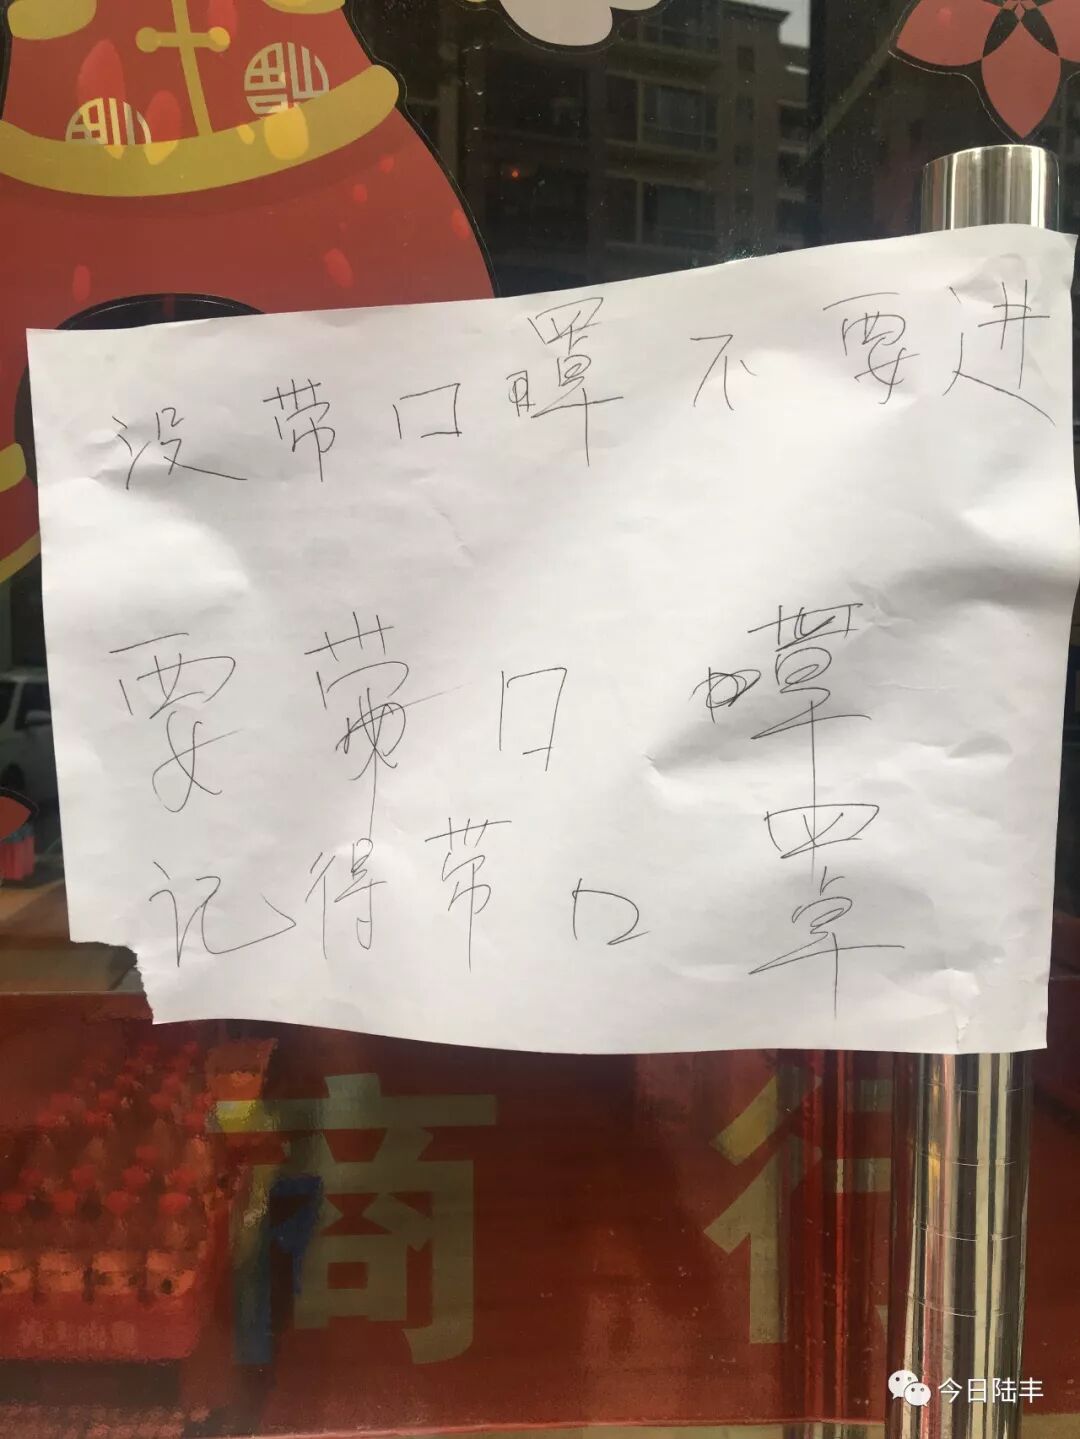 没带口罩不要进
要带口罩
记得带口罩
商
今日陆丰